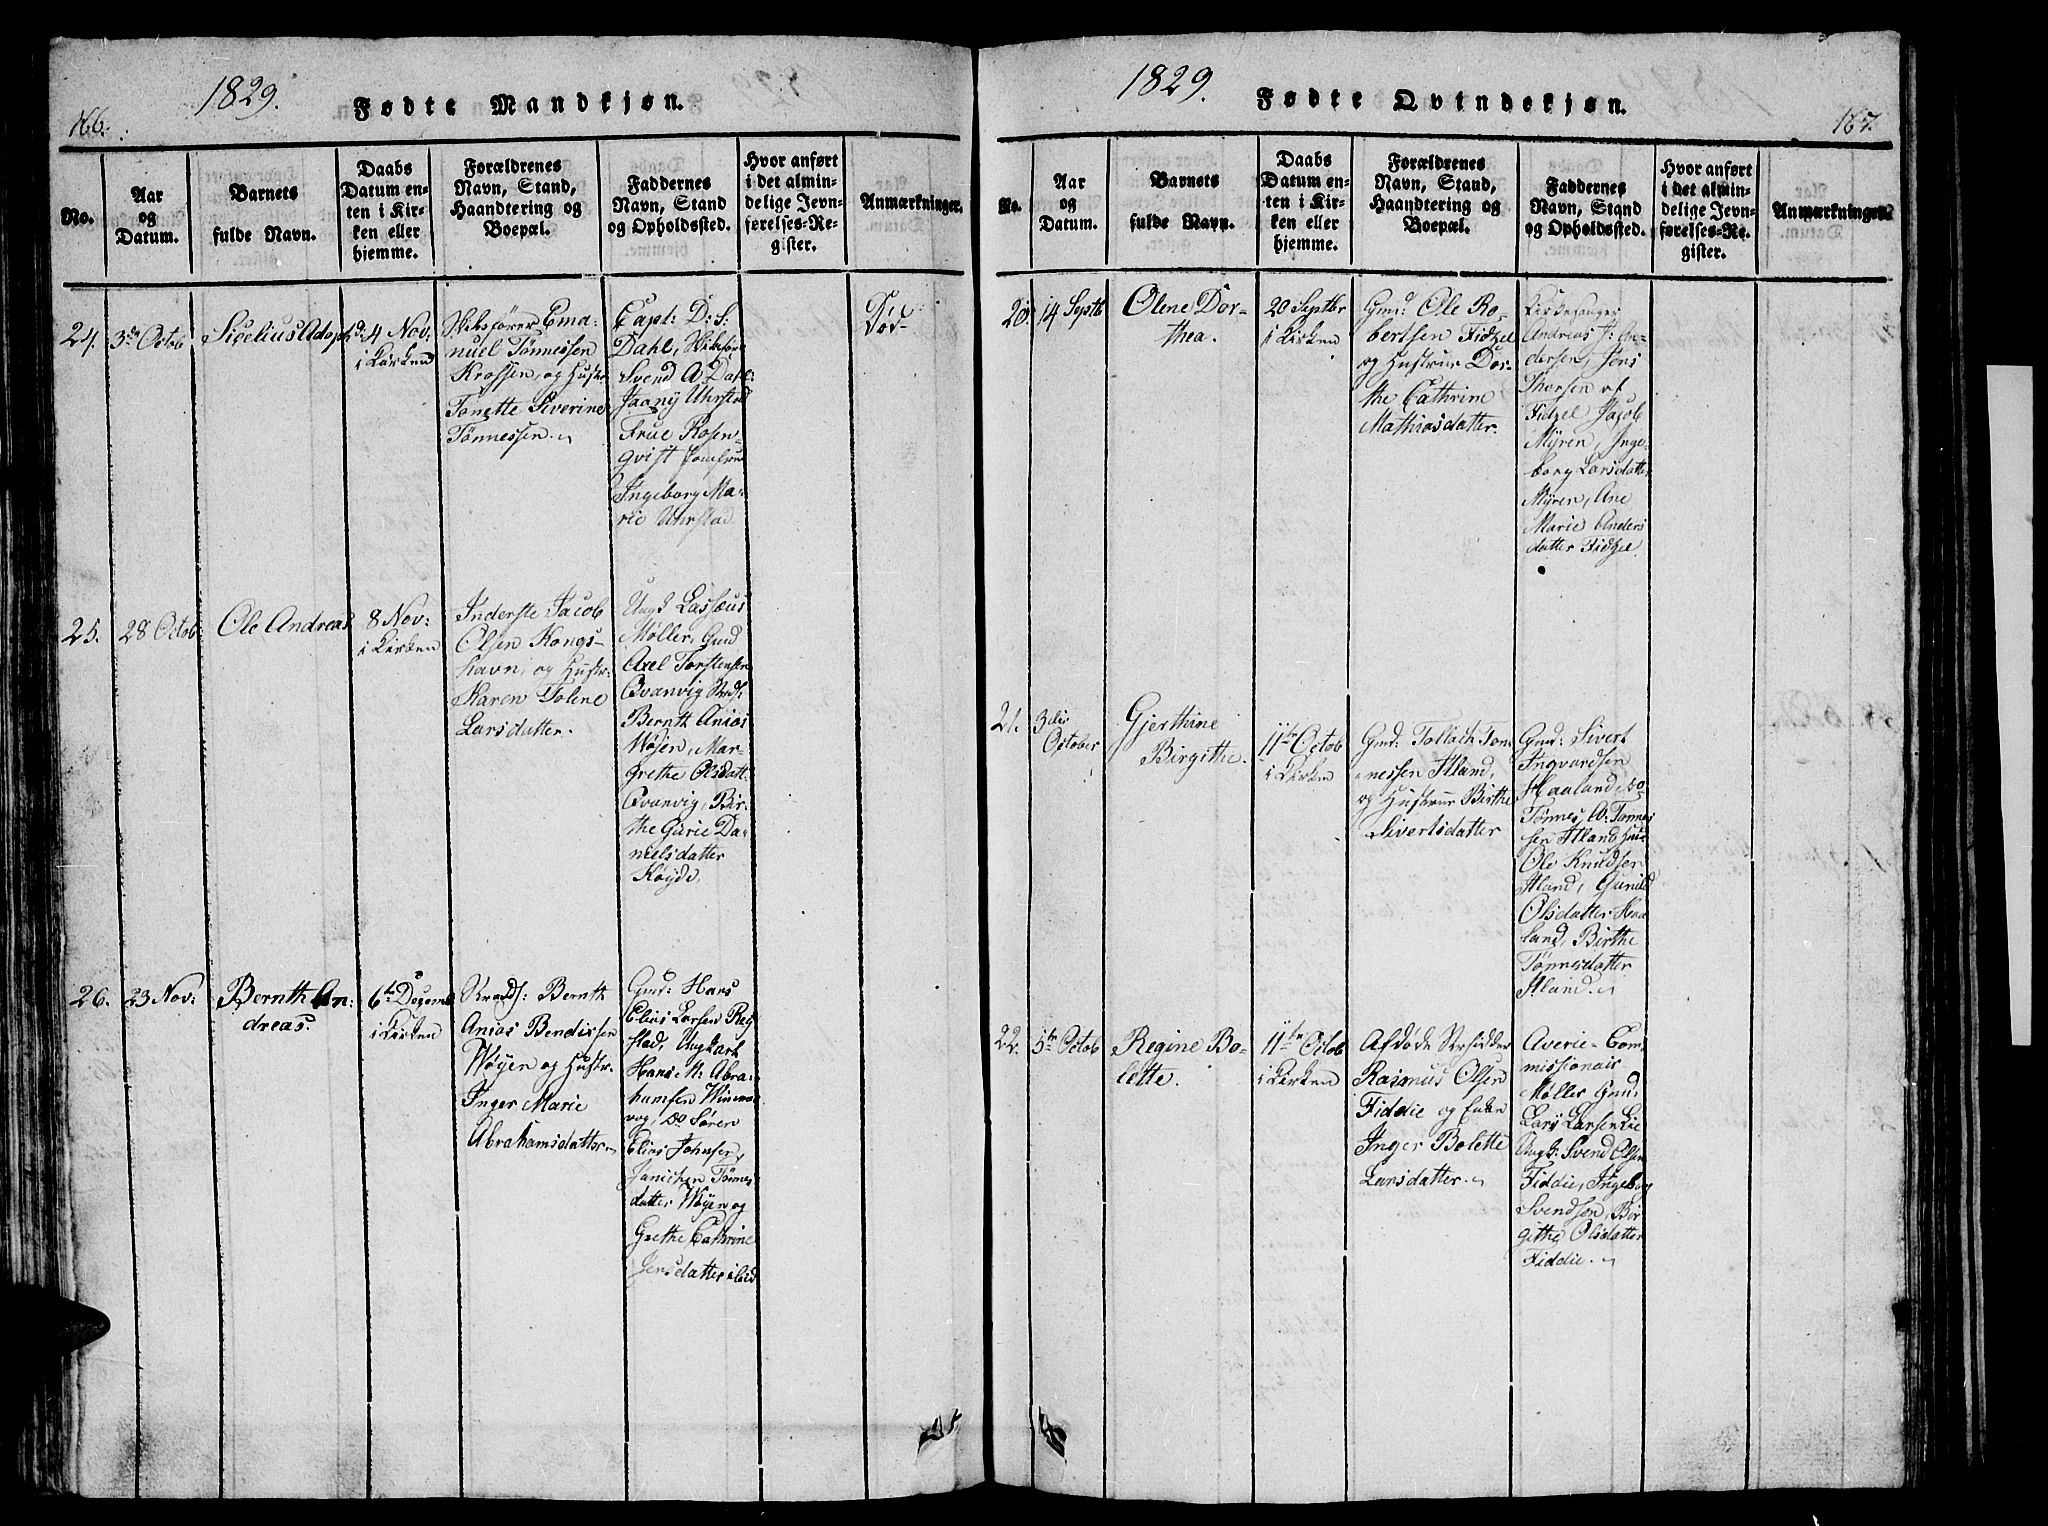 166.
1829.
Fødte Mandkjøn.
No.
Aar
og
Datum.
Barnets
fulde Navn.
Daabs
Datum en-
ten i Kir-
ken eller
hjemme.
Forældrenes
Navn, Stand,
Haandtering og
Boepæl.
Faddernes
Navn, Stand
og Opholdssted.
Hvor anført
i det almin-
delige Jevn-
førelses-Re-
gister.
Anmærkninger.
24.
3de Octob
Sicelius Adoph
d: 4 Nov:
i Kirken
Skibsfører Ema-
nuel Tönnessen
Krossen, og Hustr.
Tonette Siverine
Tönnessen.
Capt: D: S:
Dahl, Skibsfører
Svend A Dahl:
Uhrstad
Frue Rosen-
qvist Jomfrue
Ingeborg Ma-
rie Uhrstad
Död
25.
28 Octob:
Ole Andreas
8 Nov:
i Kirken
Inderste Jacob
Olsen Kongs-
havn, og Hustr.
Karen Tolene
Larsdatter.
Ungk Lassæus
Møller, Gmd
Axel Torstensen
Qvanvig
Bernth Anias
Wøjen, Mar-
grethe Olsdatt.
Qvanvig, Bir-
the Gurie Da-
nielsdatter
Köyde.
26.
23 Nov:
Bernth An:
dreas.
6te Decemb
i Kirken
Strands: Bernth
Anias Bendixsen
Wøyen og Hustr.
Inger Marie
Abrahamsdatter
Gmd: Hans
Elias Larsen Reg
stad, Ungkarl
Hans M: Abra-
hamsen
vog, do Sören
Elias Johnsen,
Janichen Tönnes
datter Wøyen og
Grethe Cathrine
Jensdatter ibid
1829.
Fødte Qvindekjøn.
167.
No.
Aar
og
Datum.
Barnets
fulde Navn.
Daabs
Datum en-
ten i Kir-
ken eller
hjemme.
Forældrenes
Navn, Stand,
Haandtering og
Boepæl.
Faddernes
Navn, Stand
og Opholdssted.
Hvor anført
i det almin-
delige Jevn-
førelses-Re-
gister.
Anmærkninger.
20.
14 Septb
Olene Dor-
thea.
20 Septbr
i Kirken
Gmd: Ole Ro-
bertsen Fidzel
og Hustrue Dor-
the Cathrine
Mathiasdatter.
Kirkesanger
Andreas J: An-
dersen, Jens
Thorsen af
Fidzel Jacob
Myren, Inge-
borg Larsdatter
Myren, Ane
Marie Anders
datter Fidzel.
21.
3die
October
Gjerthine
Birgithe.
11te Octob
i Kirken
Gmd: Tollach Ton-
nessen Itland,
og Hustrue Birthe
Sivertsdatter
Gmd: Sivert
Ingvardsen
Haaland, do
Tönnes, A: Tonnes
sen Itland
Ole Knudsen
Itland, Gunild
Olsdatter Haa
land, Birthe
Tönnesdatter
Itland.
22.
5te Octob
Regine Bo-
lette.
11te Octob
i Kirken
Afdöde Strsidder
Rasmus Olsen
Fiddie og Enke
Inger Bolette
Larsdatter.
Averie-Com
missionair
Møller Gmd:
Lars Larsen Lie
Ungk: Svend Olsen
Fiddie, Ingeborg
Svendsen, Bir-
githe Olsdatter
Fiddie.